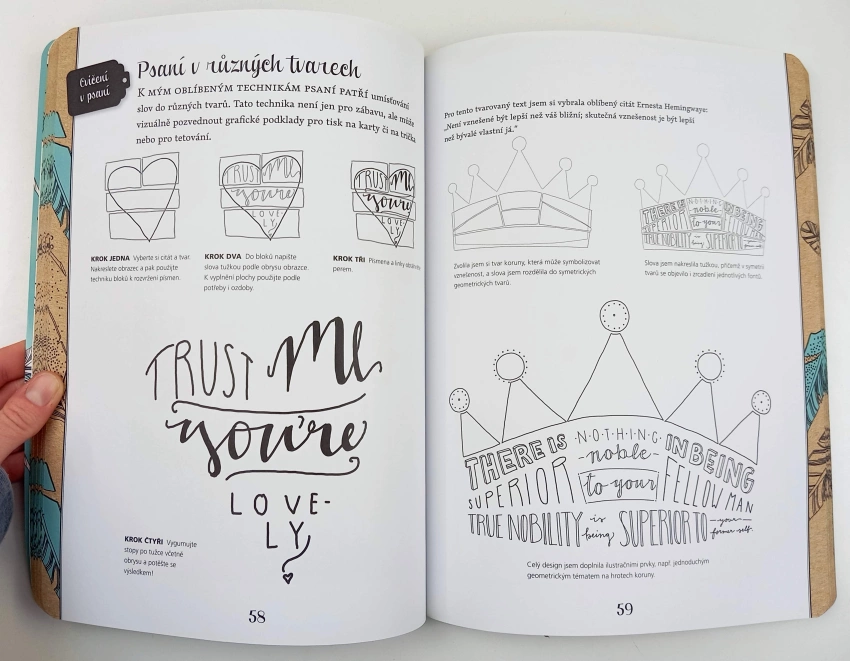 Cvičení
v psaní
Psaní v různých tvarech
K MÝM OBLÍBENÝM TECHNIKÁM PSANÍ PATŘÍ umisťování
slov do různých tvarů. Tato technika není jen pro zábavu, ale může
vizuálně pozvednout grafické podklady pro tisk na karty či na trička
nebo pro tetování.
TRUST Me
you're
LOVE-
LY
TRUST Me
you're
LOVE-
LY
KROK JEDNA Vyberte si citát a tvar.
Nakreslete obrazec a pak použijte
techniku bloků k rozvržení písmen.
KROK DVA Do bloků napište
slova tužkou podle obrysu obrazce.
K vyplnění plochy použijte podle
potřeby i ozdoby.
KROK TŘI Písmena a linky
perem.
TRUST Me
you're
LOVE-
LY
KROK ČTYŘI Vygumujte
stopy po tužce včetně
obrysu a potěšte se
výsledkem!
58
Pro tento tvarovaný text jsem si vybrala oblíbený citát Ernesta Hemingwaye:
„Není vznešené být lepší než váš bližní; skutečná vznešenost je být lepší
než bývalé vlastní já.“
THERE IS NOTHING IN BEING
SUPERIOR noble to your
TRUE NOBILITY is being SUPERIOR TO
Zvolila jsem si tvar koruny, která může symbolizovat
vznešenost, a slova jsem rozdělila do symetrických
geometrických tvarů.
Slova jsem nakreslila tužkou, přičemž v symetrii
tvarů se objevilo i zrcadlení jednotlivých fontů.
THERE IS ·NOTHING· IN BEING
SUPERIOR -noble- to your FELLOW MAN
TRUE NOBILITY -is- being SUPERIOR TO -your- former self.
Celý design jsem doplnila ilustračními prvky, např. jednoduchým
geometrickým tématem na hrotech koruny.
59